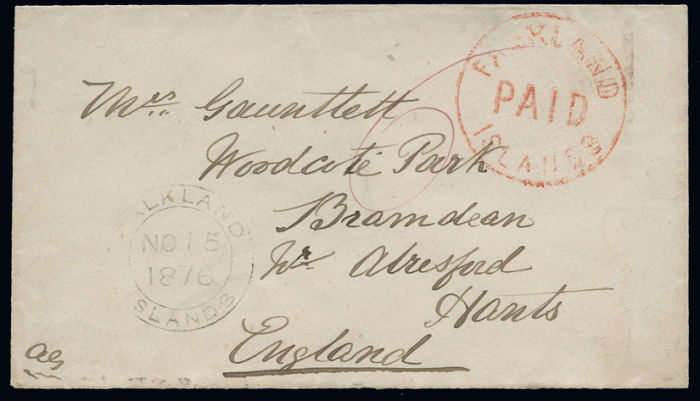 FALKLAND
PAID
ISLANDS
Mrs. Gauntlett
Woodcote Park
Bramdean
Nr Alresford
Hants
England
FALKLAND
NO 15
1876
ISLANDS